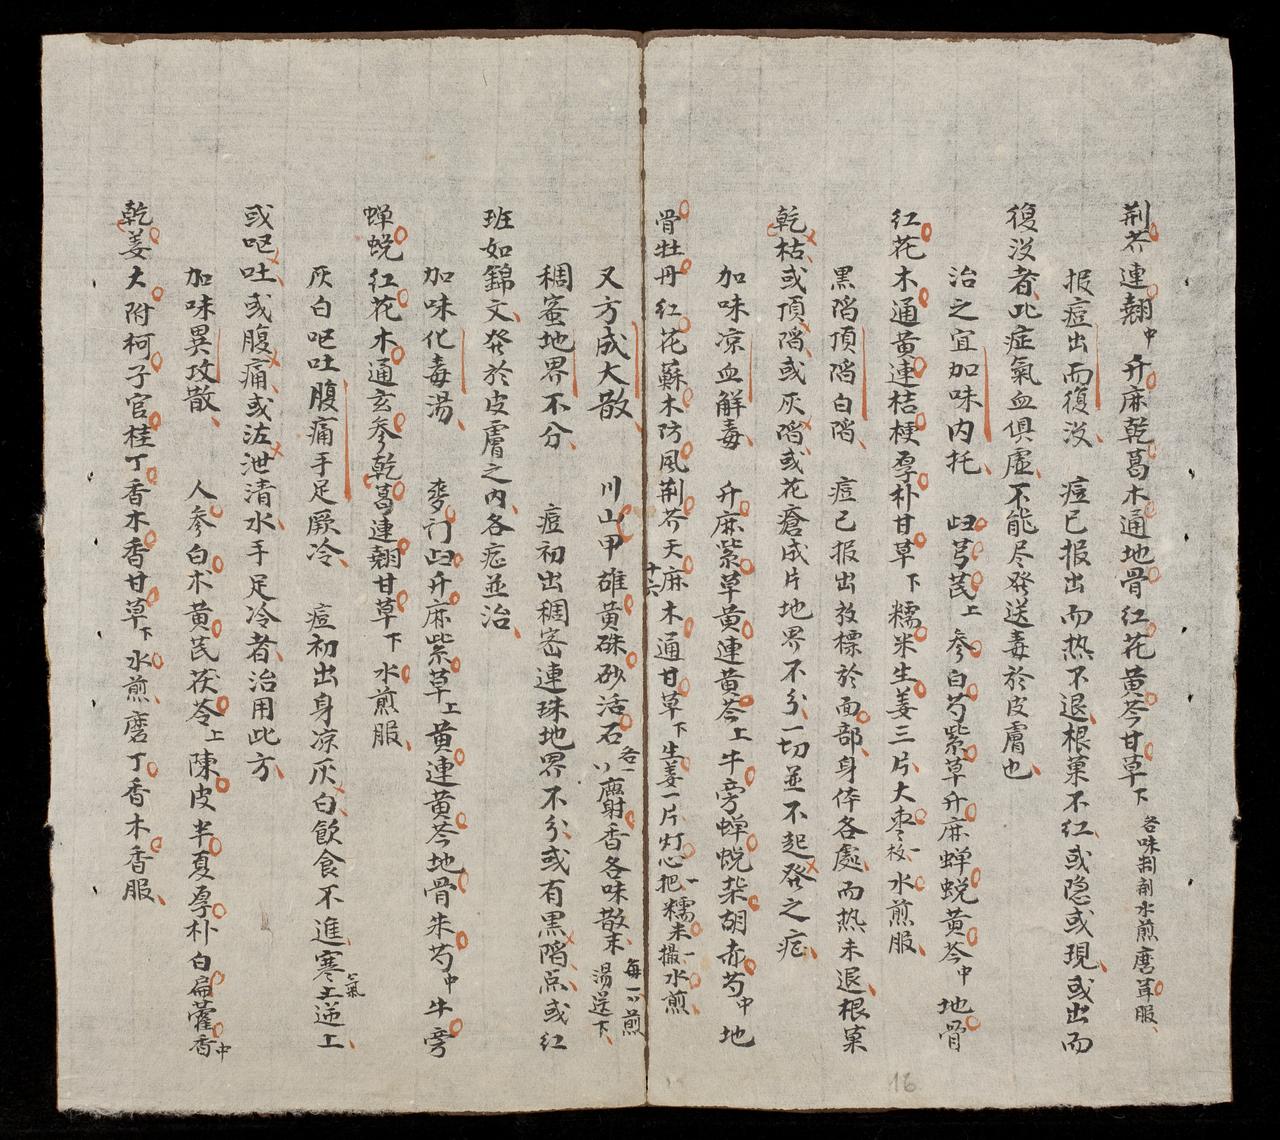 荆芥連翹中升麻乾葛木通地骨红花黄芩甘草下各味剉剤水煎磨茸服
报痘出而復没 痘已报出而热不退根菓不红或隐或現或出而
復没者此症氣血俱虚不能尽発送毒於皮膚也
治之宜加味内托 归芎芪上参白芍紫草升麻蝉蜕黄芩中地骨
红花木通黄連桔梗厚朴甘草下糯米生姜三片大枣一枚水煎服
黑陷頂陷白陷 痘已报出放標於面部身倅各處而热未退根菓
乾枯或頂陷或灰陷或花瘡成片地界不分一切並不起発之症
加味凉血解毒 升麻紫草黄連黄芩上牛旁蝉蜕柴胡赤芍中地
骨牡丹红花蘇木防風荆芥天麻木通甘草下生姜一片灯心一把糯米一撮水煎
十六
又方成大散 川山甲雄黄硃砂活石各一麝香各味散末每一煎湯送下
稠蜜地界不分 痘初出稠密連珠地界不分或有黑陷点或红
班如錦文発於皮膚之内各症並治
加味化毒湯 麥门归升麻紫草上黄連黄芩地骨朱芍中牛旁
蝉蜕红花木通玄参乾葛連翹甘草下水煎服
灰白呕吐腹痛手足厥冷 痘初出身凉灰白飲食不進寒氣上逆上
或呕吐或腹痛或泄泄清水手足冷者治用此方
加味異攻散 人参白术黄芪茯苓上陳皮半夏厚朴白扁藿香中
乾姜大附柯子官桂丁香木香甘草下水煎磨丁香木香服
16